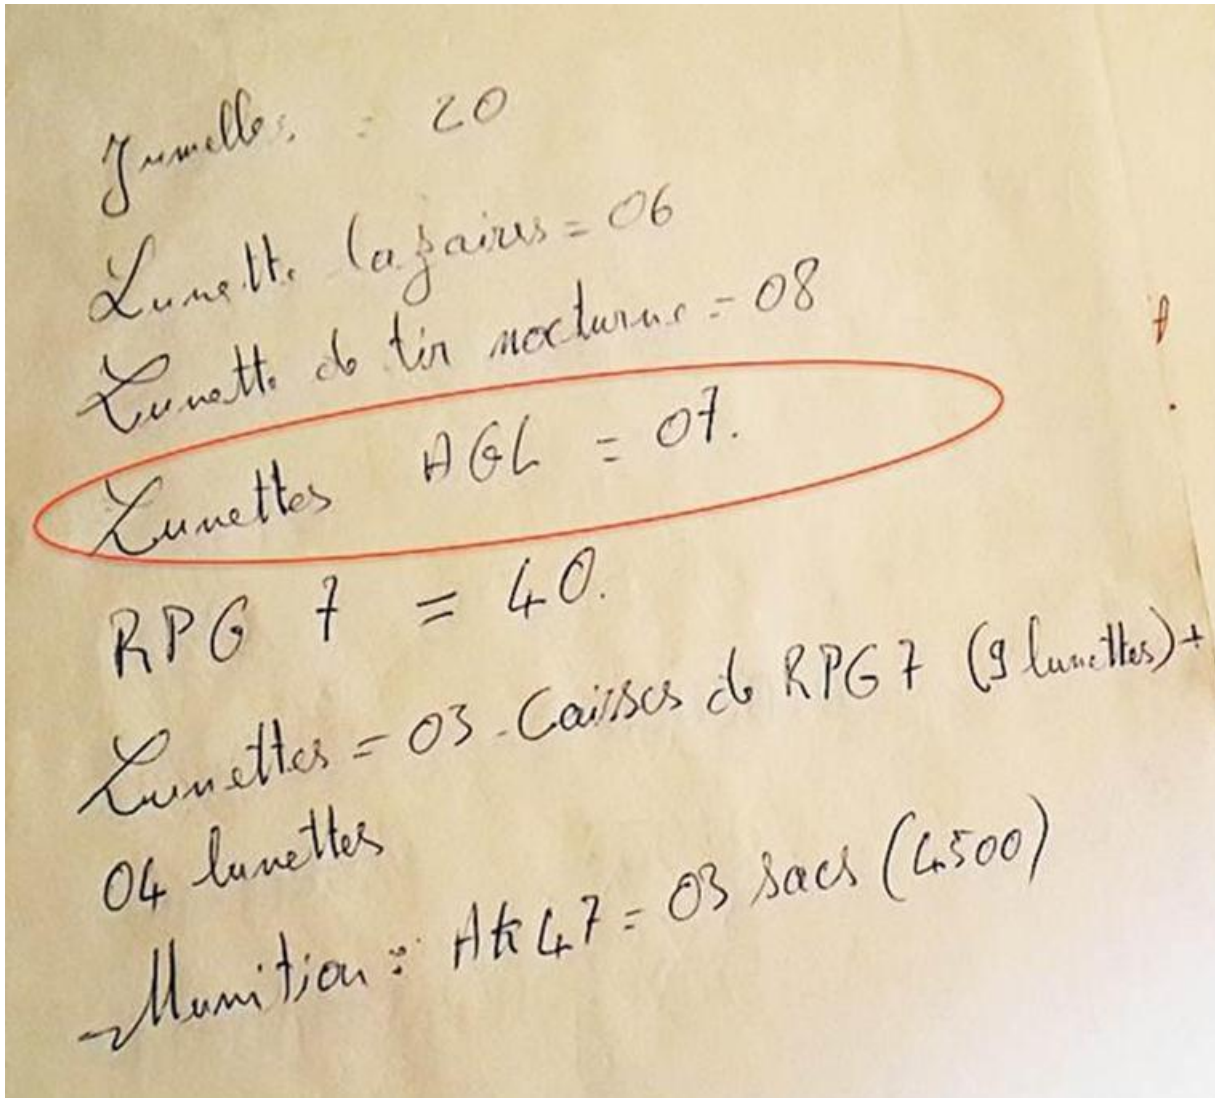 Jumelles = 20
Lunette lazaires = 06
Lunette de tir nocturne = 08
Lunettes AGL = 07.
RPG 7 = 40.
Lunettes = 03 - Caisses de RPG 7 (9 lunettes) +
04 lunettes
Munition : AK 47 = 03 sacs (4500)